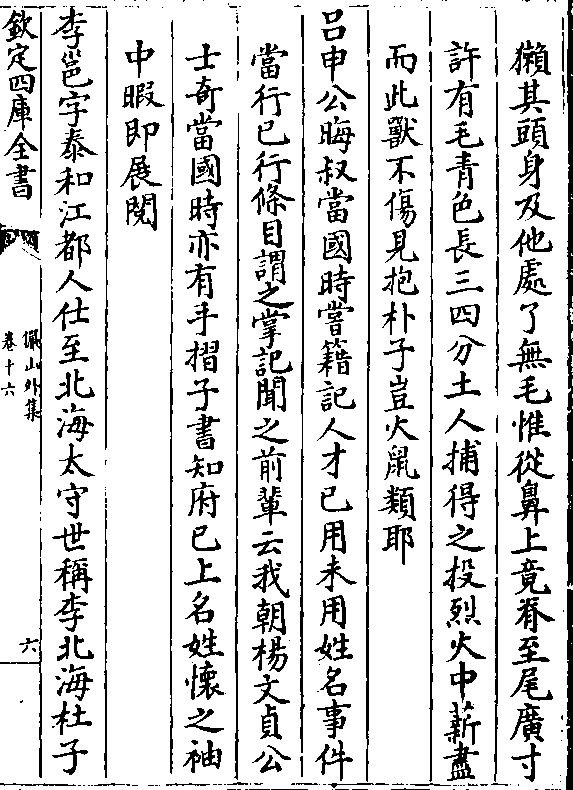 獺其頭身及他處了無毛惟從鼻上竟脊至尾廣寸
許有毛青色長三四分土人捕得之投烈火中薪盡
而此獸不傷見抱朴子豈火鼠類耶
吕申公晦叔當國時嘗籍記人才已用未用姓名事件
當行已行條目謂之掌記聞之前軰云我朝楊文貞公
士竒當國時亦有手摺子書知府已上名姓懷之袖
中暇即展閱
李邕字泰和江都人仕至北海太守世稱李北海杜子
欽定四庫全書
儼山外集
卷十六
六